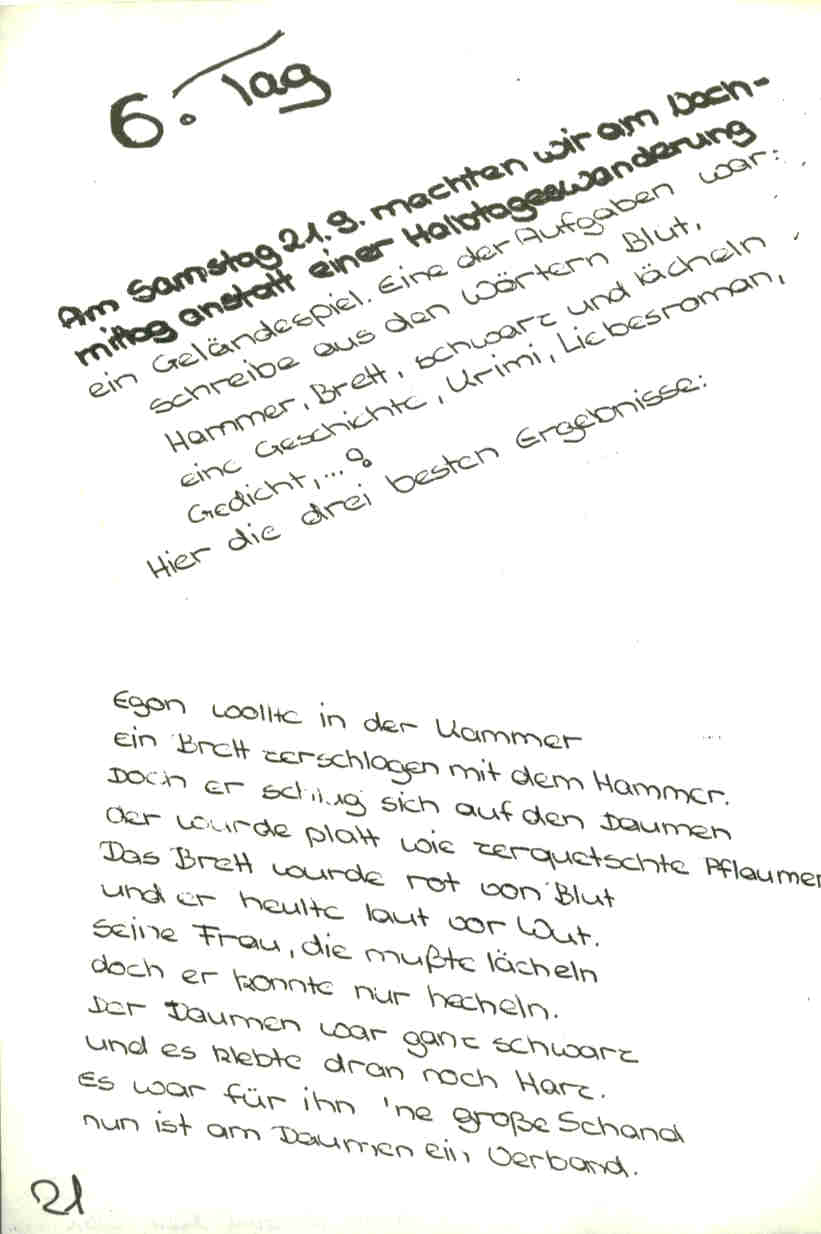 6. Tag
Am Samstag 21.9. machten wir am Nach-
mittag anstatt einer Halbtageswanderung
ein Geländespiel. Eine der Aufgaben war:
Schreibe aus den Wörtern Blut,
Hammer, Brett, schwarz und lächeln
eine Geschichte, Krimi, Liebesroman,
Gedicht,...?
Hier die drei besten Ergebnisse:
Egon wollte in der Kammer
ein Brett zerschlagen mit dem Hammer.
Doch er schlug sich auf den Daumen
der wurde platt wie zerquetschte Pflaumen
Das Brett wurde rot von Blut
und er heulte laut vor Wut.
Seine Frau, die mußte lächeln
doch er konnte nur hecheln.
Der Daumen war ganz schwarz
und es klebte dran noch Harz.
Es war für ihn 'ne große Schand
nun ist am Daumen ein Verband.
21